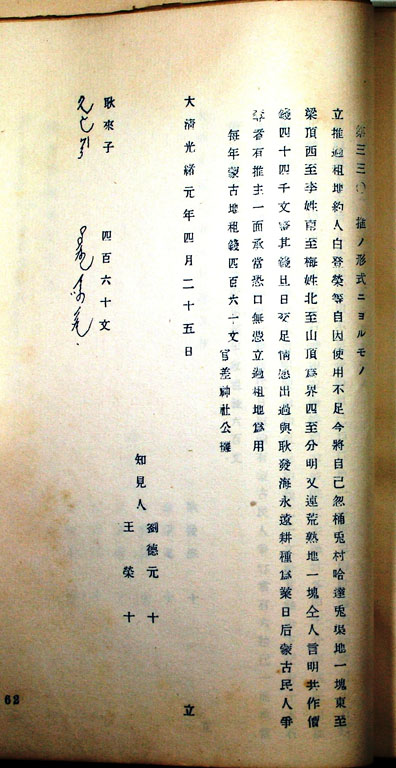 第三三〇 推ノ形式ニヨルモノ
立推過租地約人白登榮等自因使用不足今將自己忽桶兎村哈達兎㘵地一塊東至
梁頂西至李姓南至梅姓北至山頂爲界四至分明又連荒熟地一塊仝人言明共作價
錢四十四千文實其錢且日交足情愿出過與耿發海永遠耕種爲業日后蒙古民人爭
者右推主一面承當恐口無憑立過租地爲用
每年蒙古地租錢四百六十文
官差神社公攤
大淸光緒元年四月二十五日 立
知見人 劉德元 十
王榮 十
耿來子 四百六十文
62